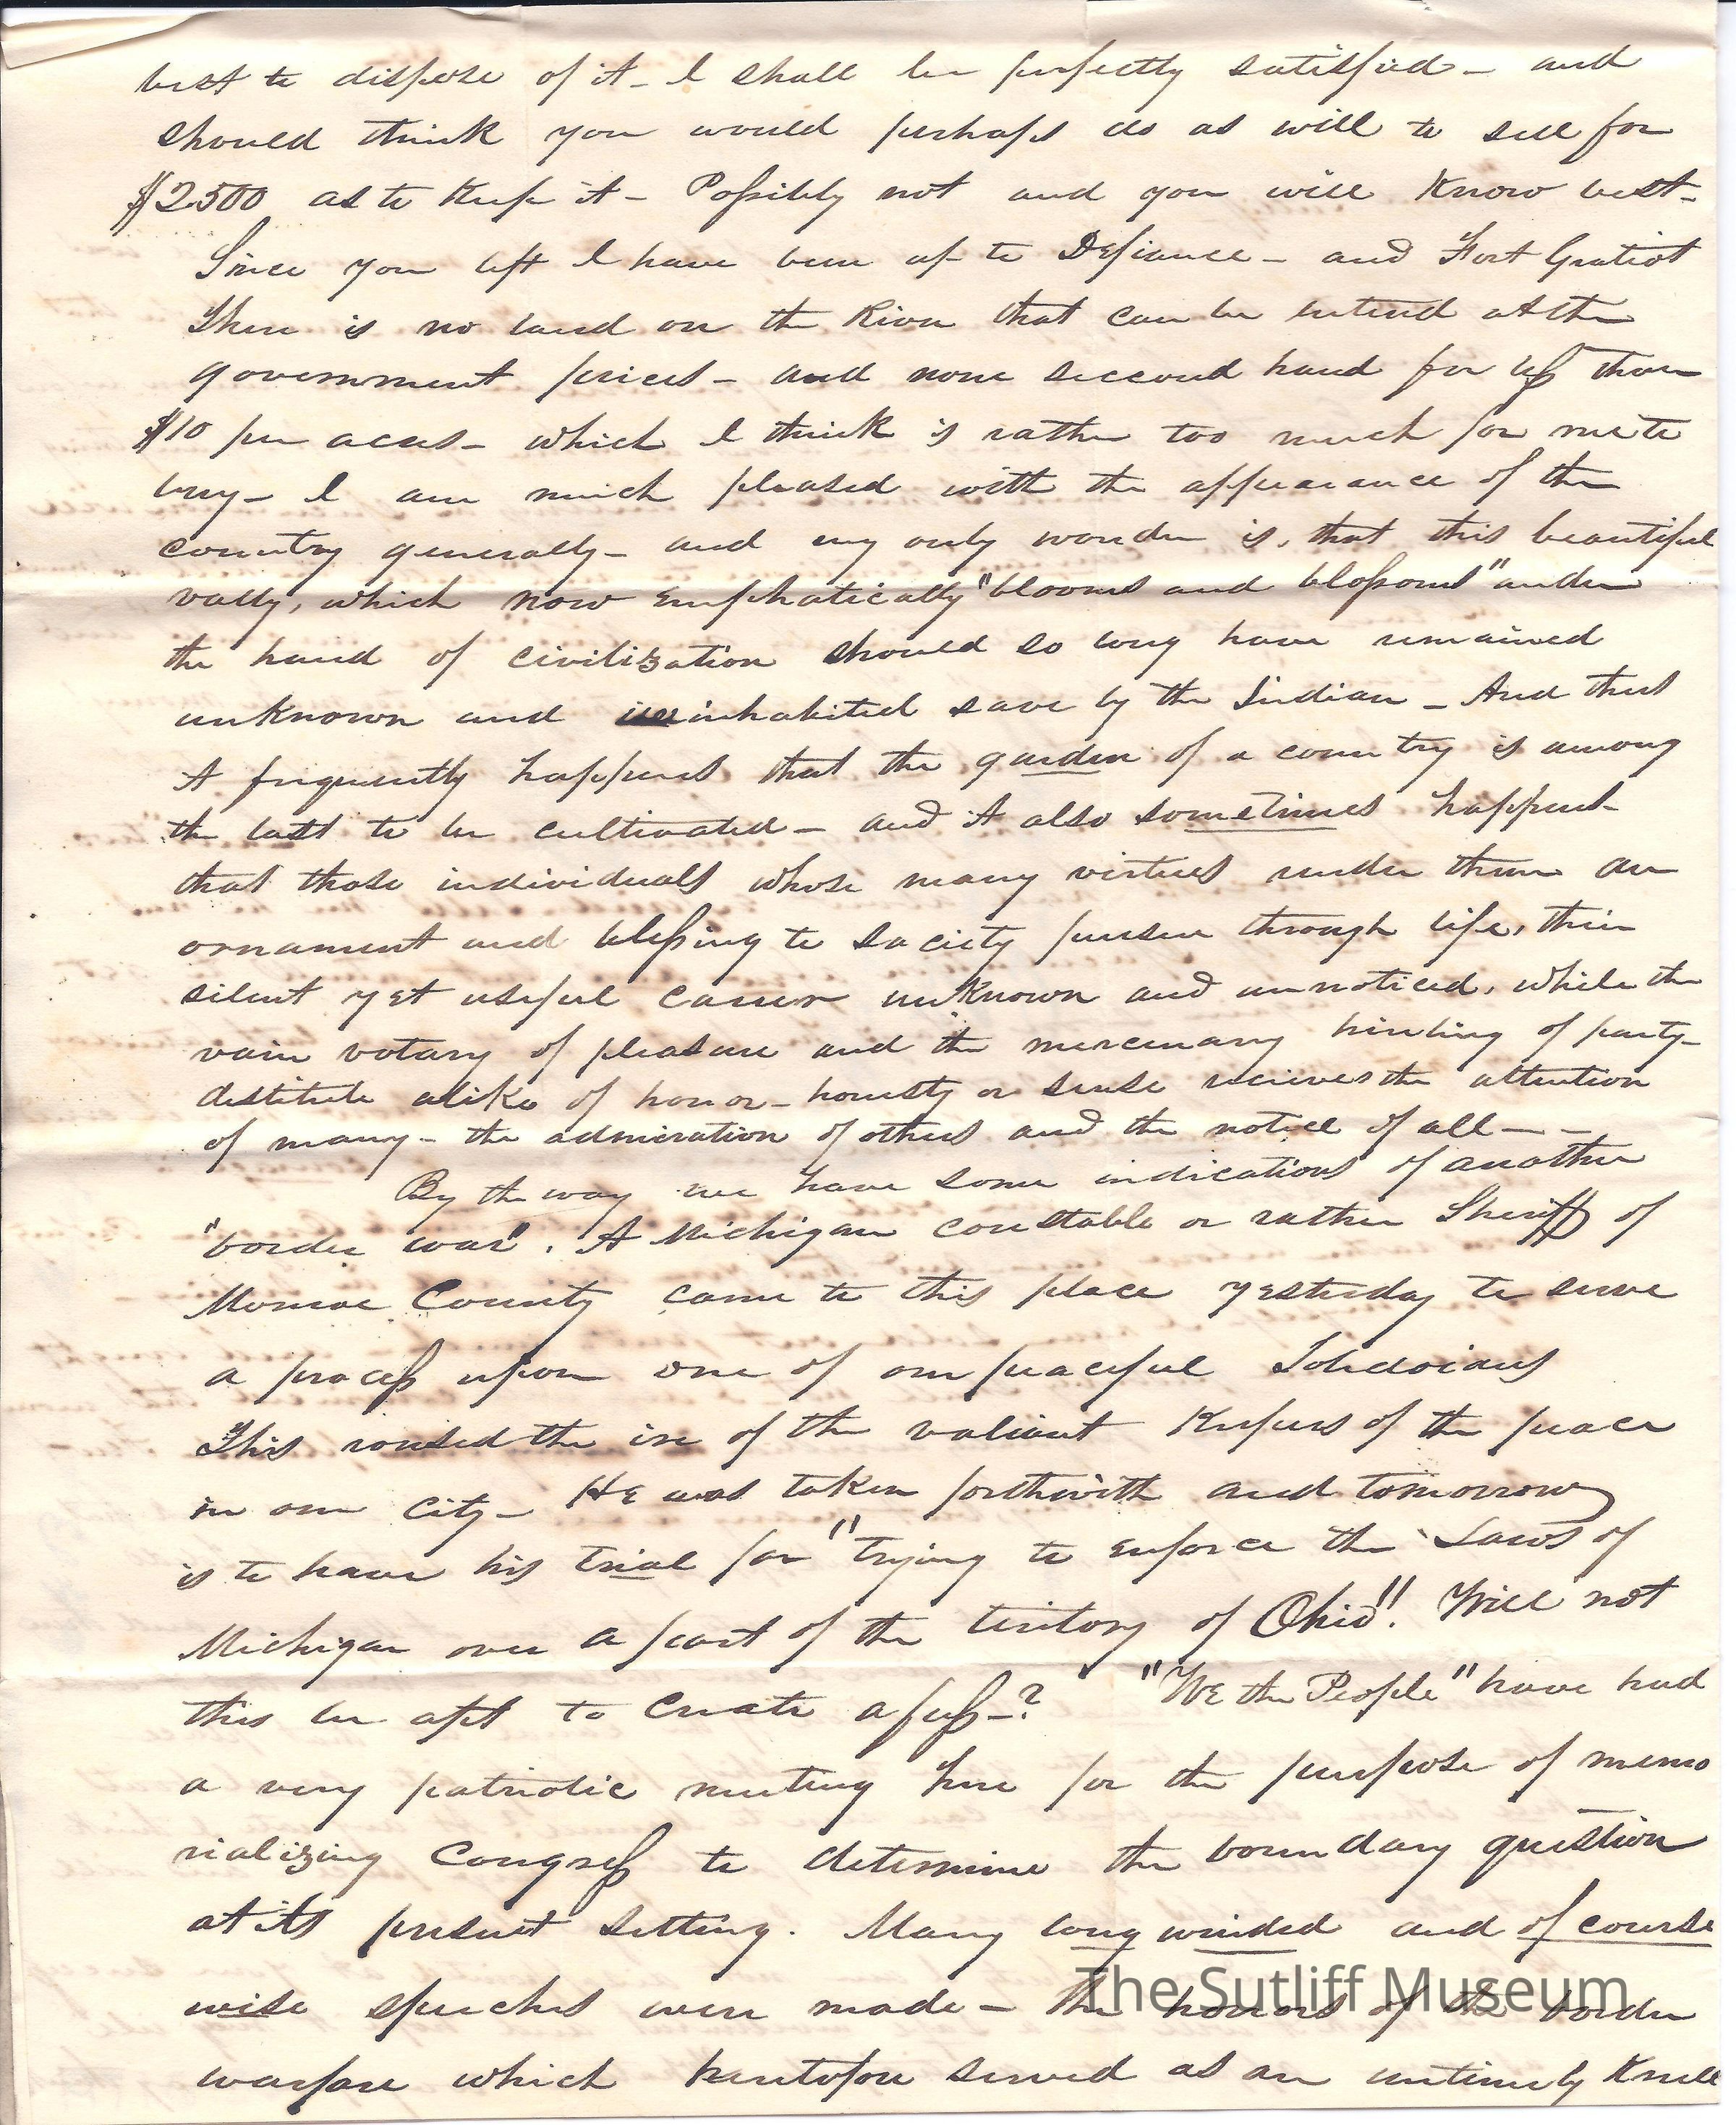 best to dispose of it - I shall be perfectly satisfied - and
should think you would perhaps do as well to sell for
$2500 as to keep it - Possibly not and you will Know best -
Since you left I have been up to Defiance - and Fort Gratiot
There is no land on the River that can be entered at the
government prices - and none seccond hand for less than
$10 per acres - which I think is rather too much for me to
buy - I am much pleased with the appearance of the
country generally - and my only wonder is, that this beautiful
vally, which now emphatically "blooms and blossoms" under
the hand of civilization should so long have remained
unknown and inhabited save by the Indian - And thus
it frequently happens that the garden of a country is among
the last to be cultivated - and it also sometimes happens
that those individuals whose many virtues render them an
ornament and blessing to society pursue through life, their
silent yet useful career unknown and unnoticed, while the
vain votary of pleasure and the mercenary hireling of party -
destitute alike of honor - honesty or sense recieves the attention
of many - the admiration of others and the notice of all - -
By the way we have some indications of another
"border war". A Michigan constable or rather Sheriff of
Monroe County came to this place yesterday to serve
a process upon one of our peaceful Toledoians
This roused the ire of the valiant Keepers of the peace
in our city - He was taken forthwith and tomorrow
is to have his trial for "trying to enforce the Laws of
Michigan over a part of the teritory of Ohio"! Will not
this be apt to create a fuss -? "We the People" have had
a very patriotic meeting here for the purpose of memo
rializing Congress to determine the boundary question
at its present setting. Many long winded and of course
wise speeches were made - the horrors of the border
warfare which heretofore served as an untimely Knell
The Sutliff Museum